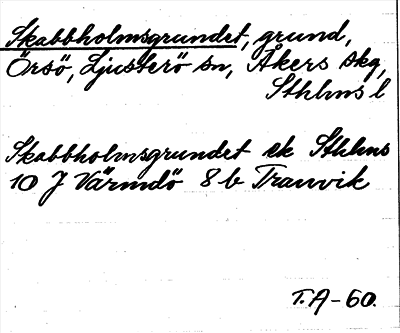 Skabbholmsgrundet, grund,
Örsö, Ljusterö sn, Åkers skg,
Sthlms l
Skabbholmsgrundet ek Sthlms
10 J Värmdö 8 b Tranvik
T.A-60.